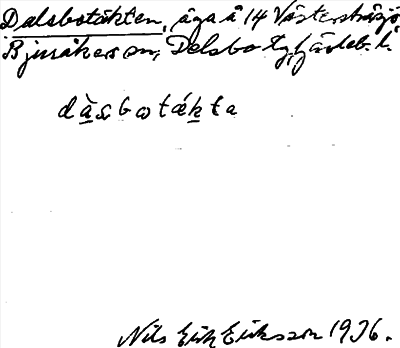 Dalsbotäkten, äga å 14 Västerstråsjö
Bjuråkers sn, Delsbo tg, Gävleb. l.
dàsbotákta
Nils Erik Eriksson 1936.